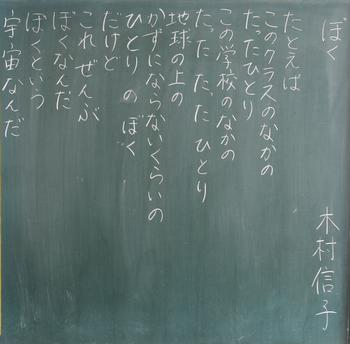 ぼく
木村信子
たとえば
このクラスのなかの
たったひとり
この学校のなかの
たった たった ひとり
地球の上の
かずにならないくらいの
ひとりのぼく
だけど
これ ぜんぶ
ぼくなんだ
ぼくという
宇宙なんだ